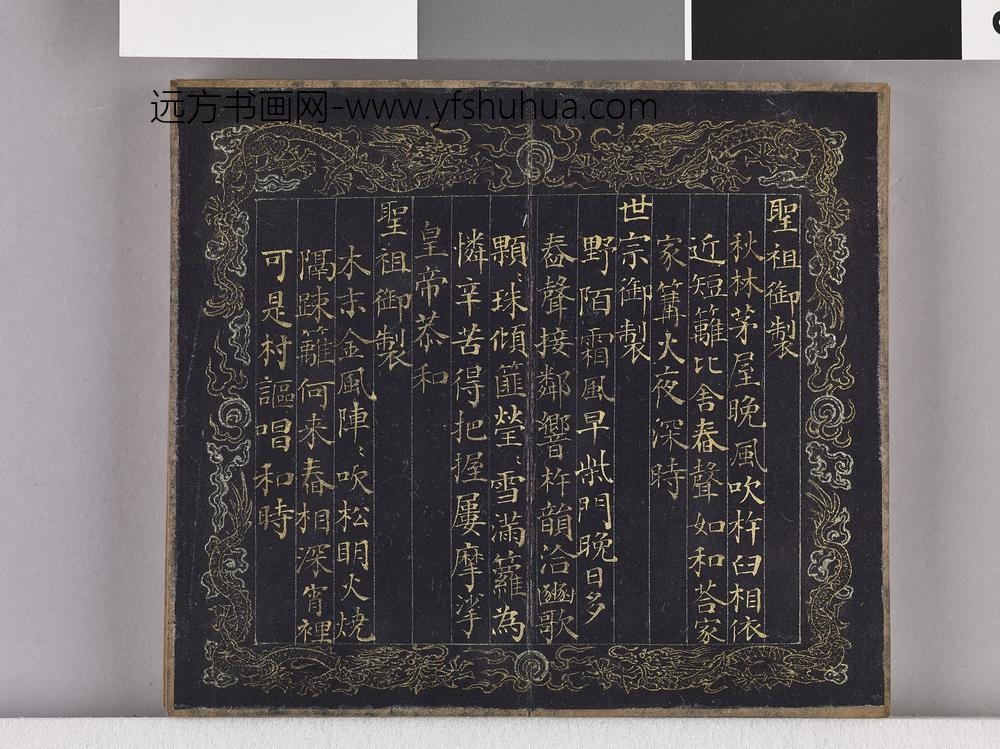 远方书画网-www.yfshuhua.com
聖祖御製
秋林茅屋晚風吹杵臼相依
近短籬比舍舂聲如和荅家
家篝火夜深時
世宗御製
野陌霜風早柴門晚日多
舂聲接鄰響杵韻洽豳歌
顆〻珠傾篚瑩〻雪滿籮為
憐辛苦得把握屢摩挲
皇帝恭和
聖祖御製
木末金風陣〻吹松明火燒
隅踈籬何来舂相深宵裡
可是村謳唱和時